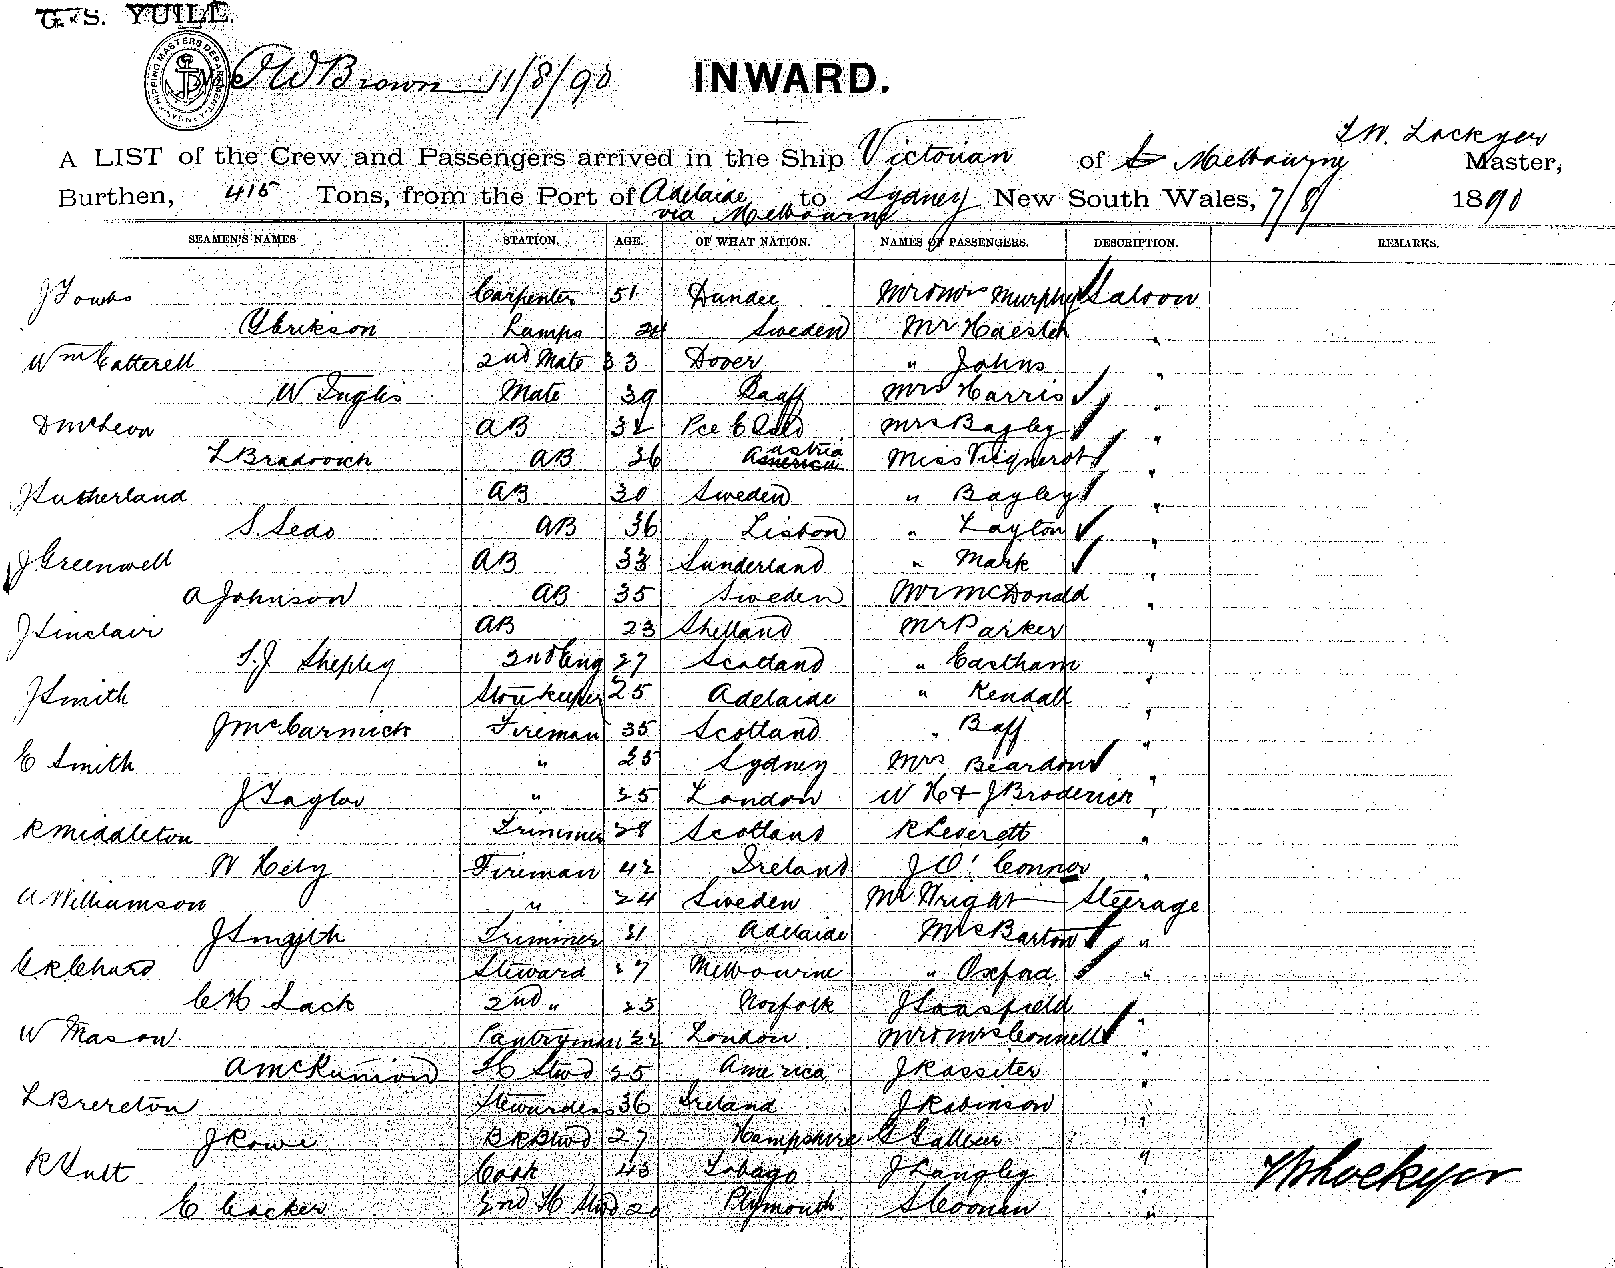 G. S. YUILL.
SHIPPING MASTERS DEPARTMENT
W Brown 11/8/90 INWARD.
T.W. Lockyer
A LIST of the Crew and Passengers arrived in the Ship Victorian of Melbourne Master,
Burthen, 415 Tons, from the Port of Adelaide to Sydney New South Wales, 7/8/ 1890
via Melbourne
SEAMEN'S NAMES STATION. AGE. OF WHAT NATION. NAMES OF PASSENGERS. DESCRIPTION. REMARKS.
J Carpenter 51 Dundee Mr & Mrs Murphy Saloon
Erikson Lamps 24 Sweden Mr "
Wm Catterell 2nd Mate 33 Dover " Johns "
W Inglis Mate 39 Banff Mrs Harris "
D McLeod AB 32 Mrs Bagley "
L Bradovich AB 36 Austria Miss "
J Sutherland AB 30 Sweden " Bagley "
S. Sedo AB 36 Lisbon " Layton "
J Greenwell AB 33 Sunderland " Mark "
A Johnson AB 35 Sweden Mr McDonald "
J Sinclair AB 23 Shetland Mr Parker "
S.J Shepley 2nd Eng 27 Scotland " Eastham "
J Smith Storekeeper 25 Adelaide " Kendall "
J McCarmick Fireman 35 Scotland " Baff "
E Smith " 25 Sydney Mrs Beardow "
J Taylor " 25 London W H & J Broderick "
R Middleton Trimmer 28 Scotland R Leverett "
W Hely Fireman 42 Ireland J O'Connor "
A Williamson " 24 Sweden Mr Wright Steerage
J Smyth Trimmer 21 Adelaide Mrs Barton "
C R Chard Steward 27 Melbourne " Oxford "
C H Lack 2nd " 25 Norfolk J "
W Mason Pantryman 22 London Mr & Mrs Connell "
A McKinnon Stwd 25 America J Rossiter "
L Brereton Stewardess 36 Ireland J Robinson "
J Rowe 27 Hampshire "
R Cook 43 Tobago J Langley "
C Cocker 2nd Stwd 20 Plymouth S Coonan "
T W Lockyer